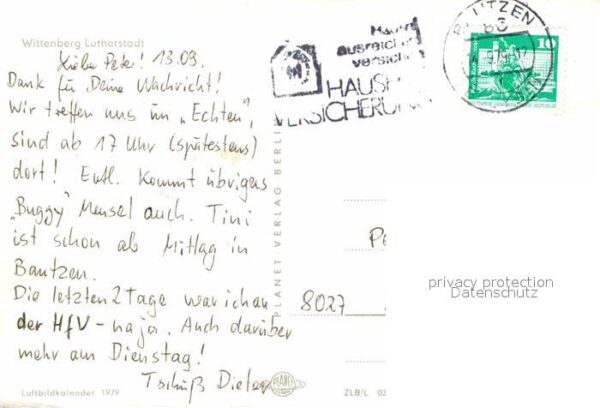 Wittenberg Lutherstadt
Liebe Peter! 13.09.
Dank für Deine Nachricht!
Wir treffen uns im „Echten",
sind ab 17 Uhr (spätestens)
dort! Evtl. kommt übrigens
„Buggy" Mensel auch. Tini
ist schon ab Mittag in
Bautzen.
Die letzten 2 Tage war ich an
der HfV - na ja. Auch darüber
mehr am Dienstag!
Tschüß Dieter
Luftbildkalender 1979
PLANET VERLAG BERLIN
PLANET
ZLB/L 03
ausreichen
versichert
HAUS
VERSICHERUNG
BAUTZEN
86
10
8027
Pe
privacy protection
Datenschutz